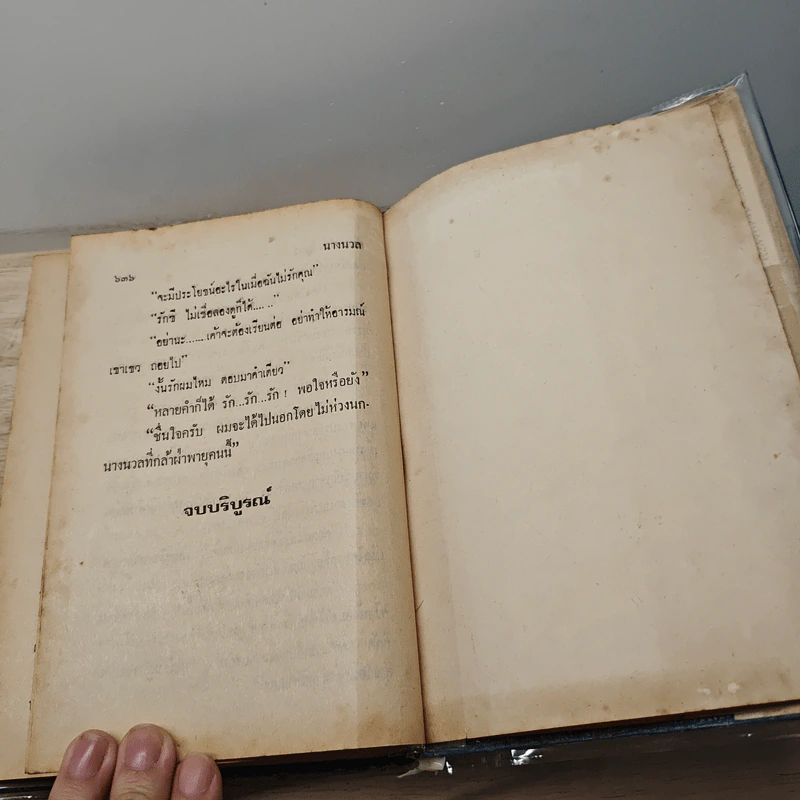 ๖๓๖
นางนวล
“จะมีประโยชน์อะไรในเมื่อฉันไม่รักคุณ”
“รักซี ไม่เชื่อลองดูก็ได้.... ..”
“อย่านะ...... เค้าจะต้องเรียนต่อ อย่าทำให้อารมณ์
เขาเขว ถอยไป”
“งั้นรักผมไหม ตอบมาคำเดียว”
“หลายคำก็ได้ รัก...รัก...รัก ! พอใจหรือยัง”
“ชื่นใจครับ ผมจะได้ไปนอกโดยไม่ห่วงนก-
นางนวลที่กล้าฝ่าพายุคนนี้”
จบบริบูรณ์